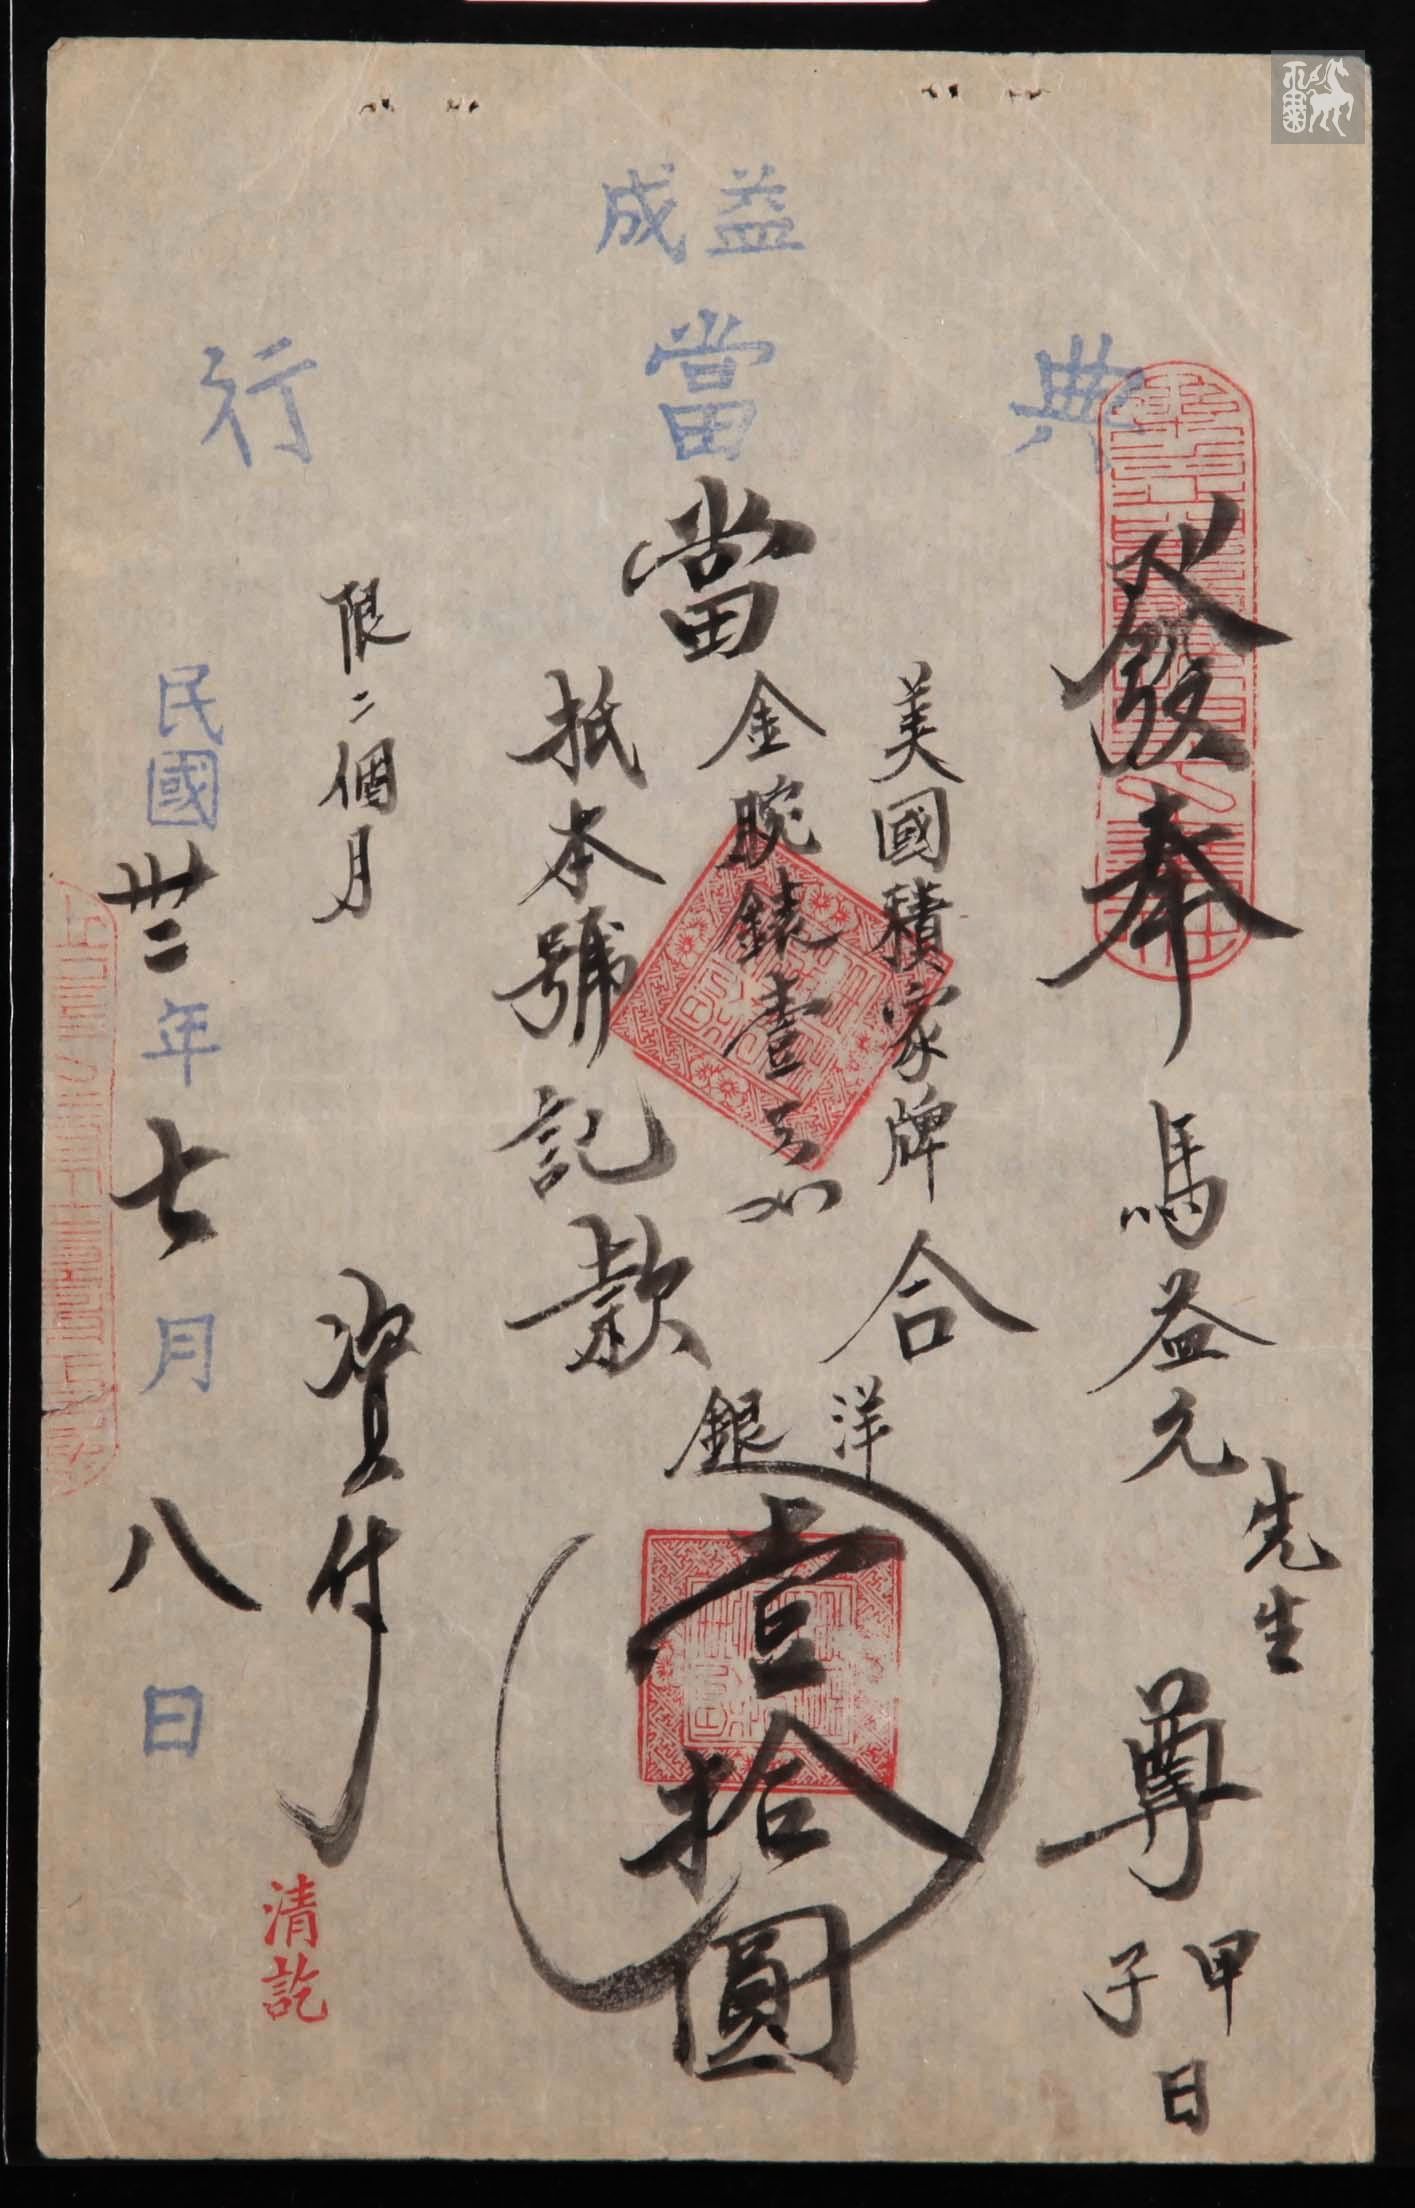 益成
典當行
發奉馬益元先生尊甲子日
美國積家牌合洋
當金腕錶壹只銀壹拾圓
抵本號記款
限二個月
付
民國卅二年七月八日
清訖